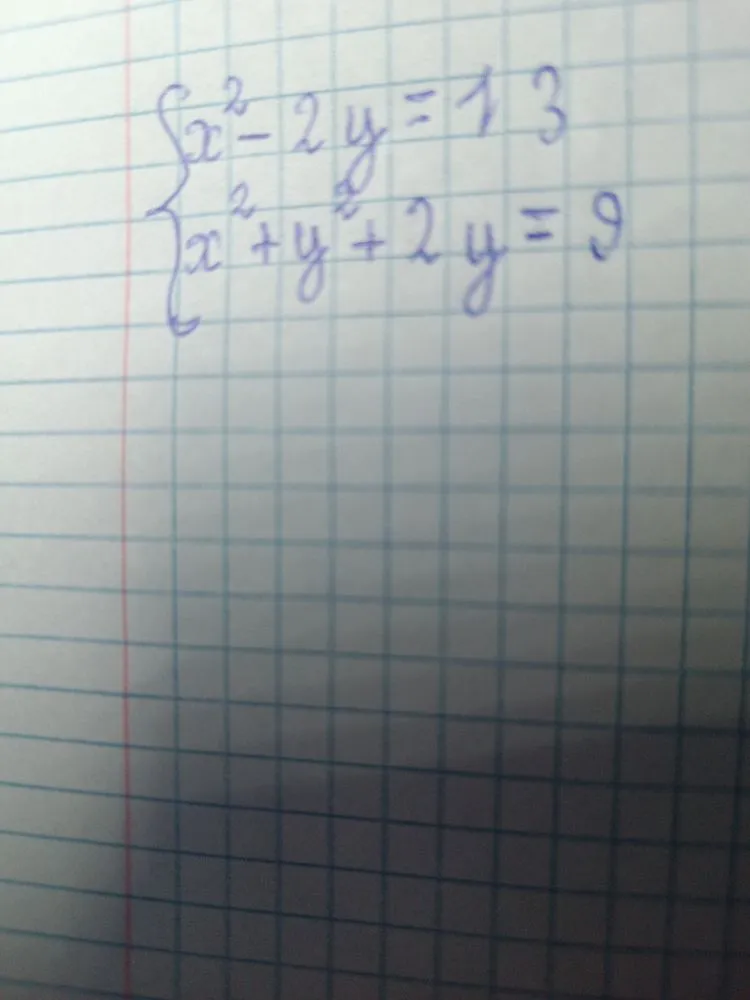 x² - 2y = 13
x² + y² + 2y = 9